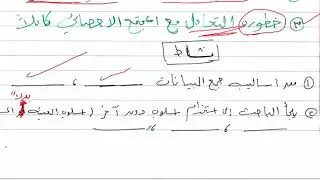 ③ خطورة التعامل مع المجتمع الاحصائي كاملاً
نشاط
① من اساليب جمع البيانات ــــــ ، ــــــ
② يلجأ الباحث الى استخدام اسلوب دون آخر (اسلوب العينة بدلاً